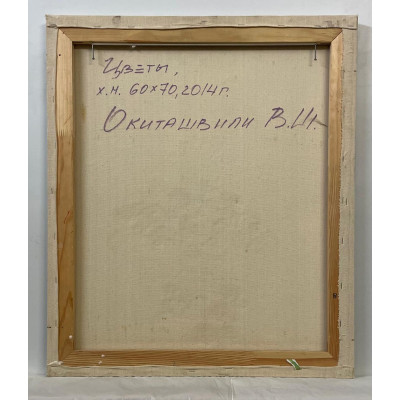 Цветы,
х.м. 60х70, 2014г.
Окиташвили В.Ш.